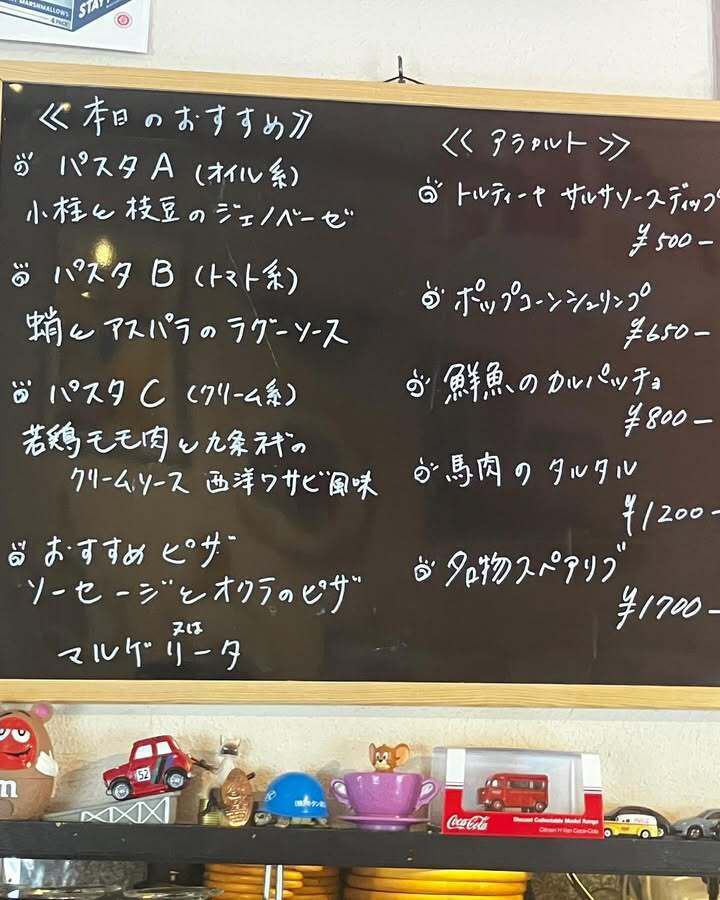 MARSHMALLOWS
STAY
≪本日のおすすめ≫
パスタA (オイル系)
小柱と枝豆のジェノベーゼ
パスタB (トマト系)
蛸とアスパラのラグーソース
パスタC (クリーム系)
若鶏モモ肉と九条ネギの
クリームソース 西洋ワサビ風味
おすすめピザ
ソーセージとオクラのピザ
又は
マルゲリータ
≪アラカルト≫
トルティーヤ サルサソースディップ
¥500-
ポップコーンシュリンプ
¥650-
鮮魚のカルパッチョ
¥800-
馬肉のタルタル
¥1200-
名物スペアリブ
¥1700-
m
52
Coca-Cola
Diecast Collectable Model Range
Citroën H Van Coca-Cola